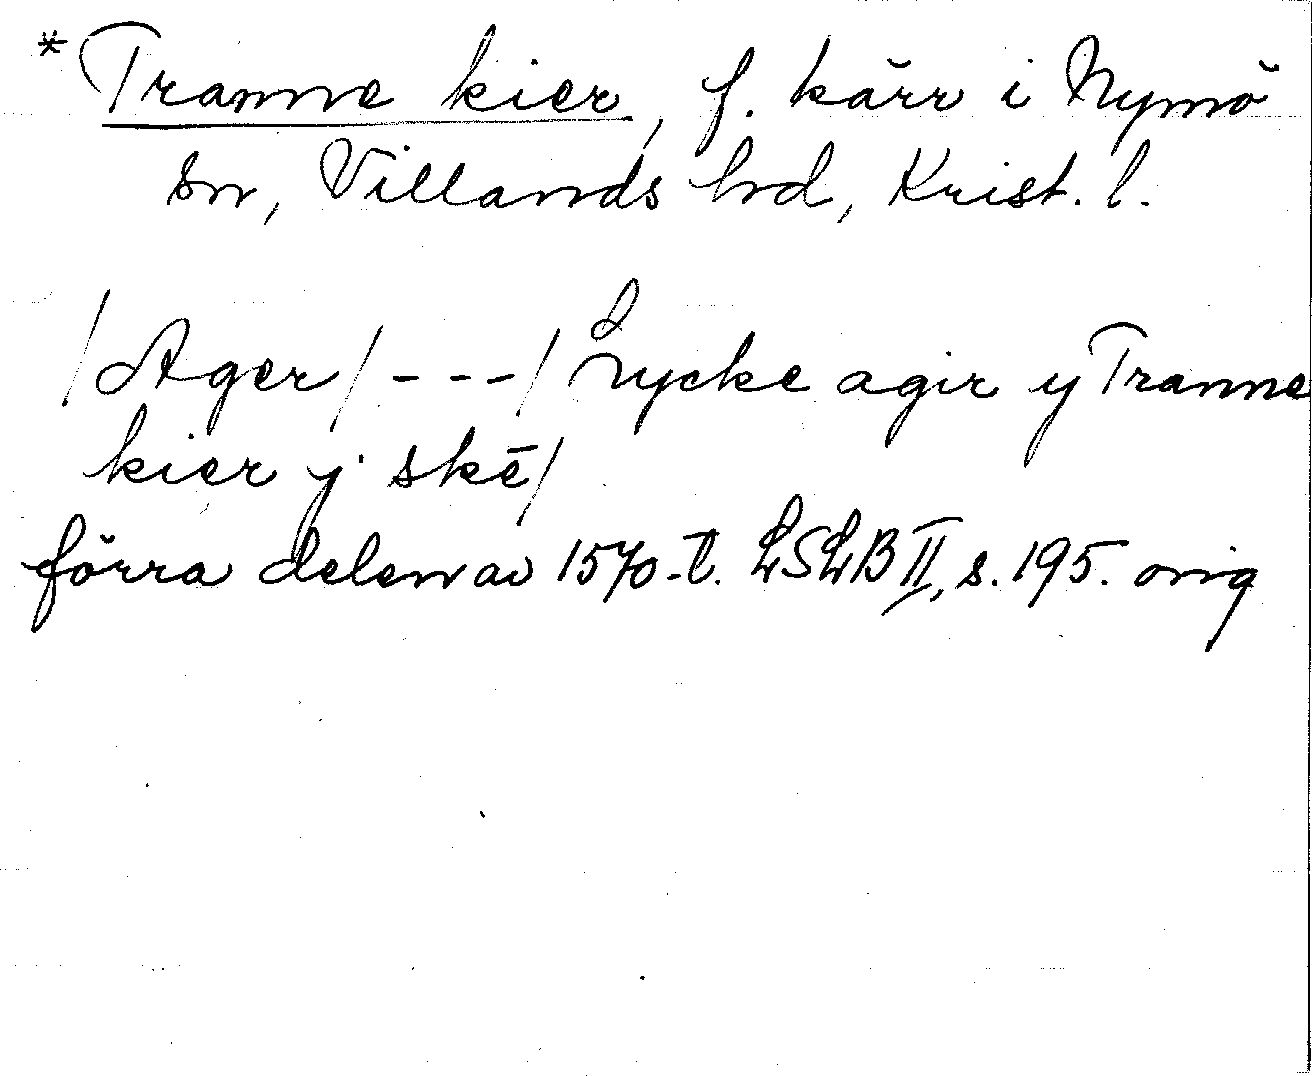 * Tranne kier, f. kärr i Nymö
sn, Villands hd, Krist. l.
/Ager/---/ Lycke agir y Tranne
kier y skē/
förra delen av 1570-t. LSLB II, s. 195. orig